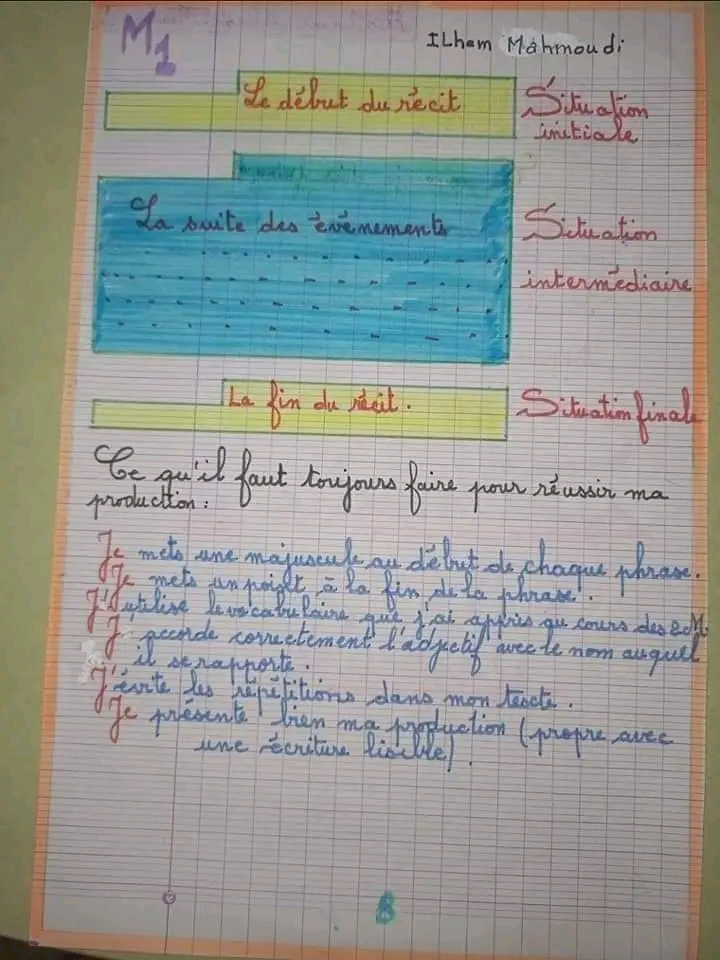 M1
ILham Mahmoudi
Le début du récit
Situation
initiale
La suite des événements
Situation
intermédiaire
La fin du récit.
Situation finale
Ce qu'il faut toujours faire pour réussir ma
production :
Je mets une majuscule au début de chaque phrase.
Je mets un point à la fin de la phrase.
J'utilise le vocabulaire que j'ai appris au cours des
J'accorde correctement l'adjectif avec le nom auquel
il se rapporte.
J'évite les répétitions dans mon texte.
Je présente bien ma production (propre avec
une écriture lisible).
8